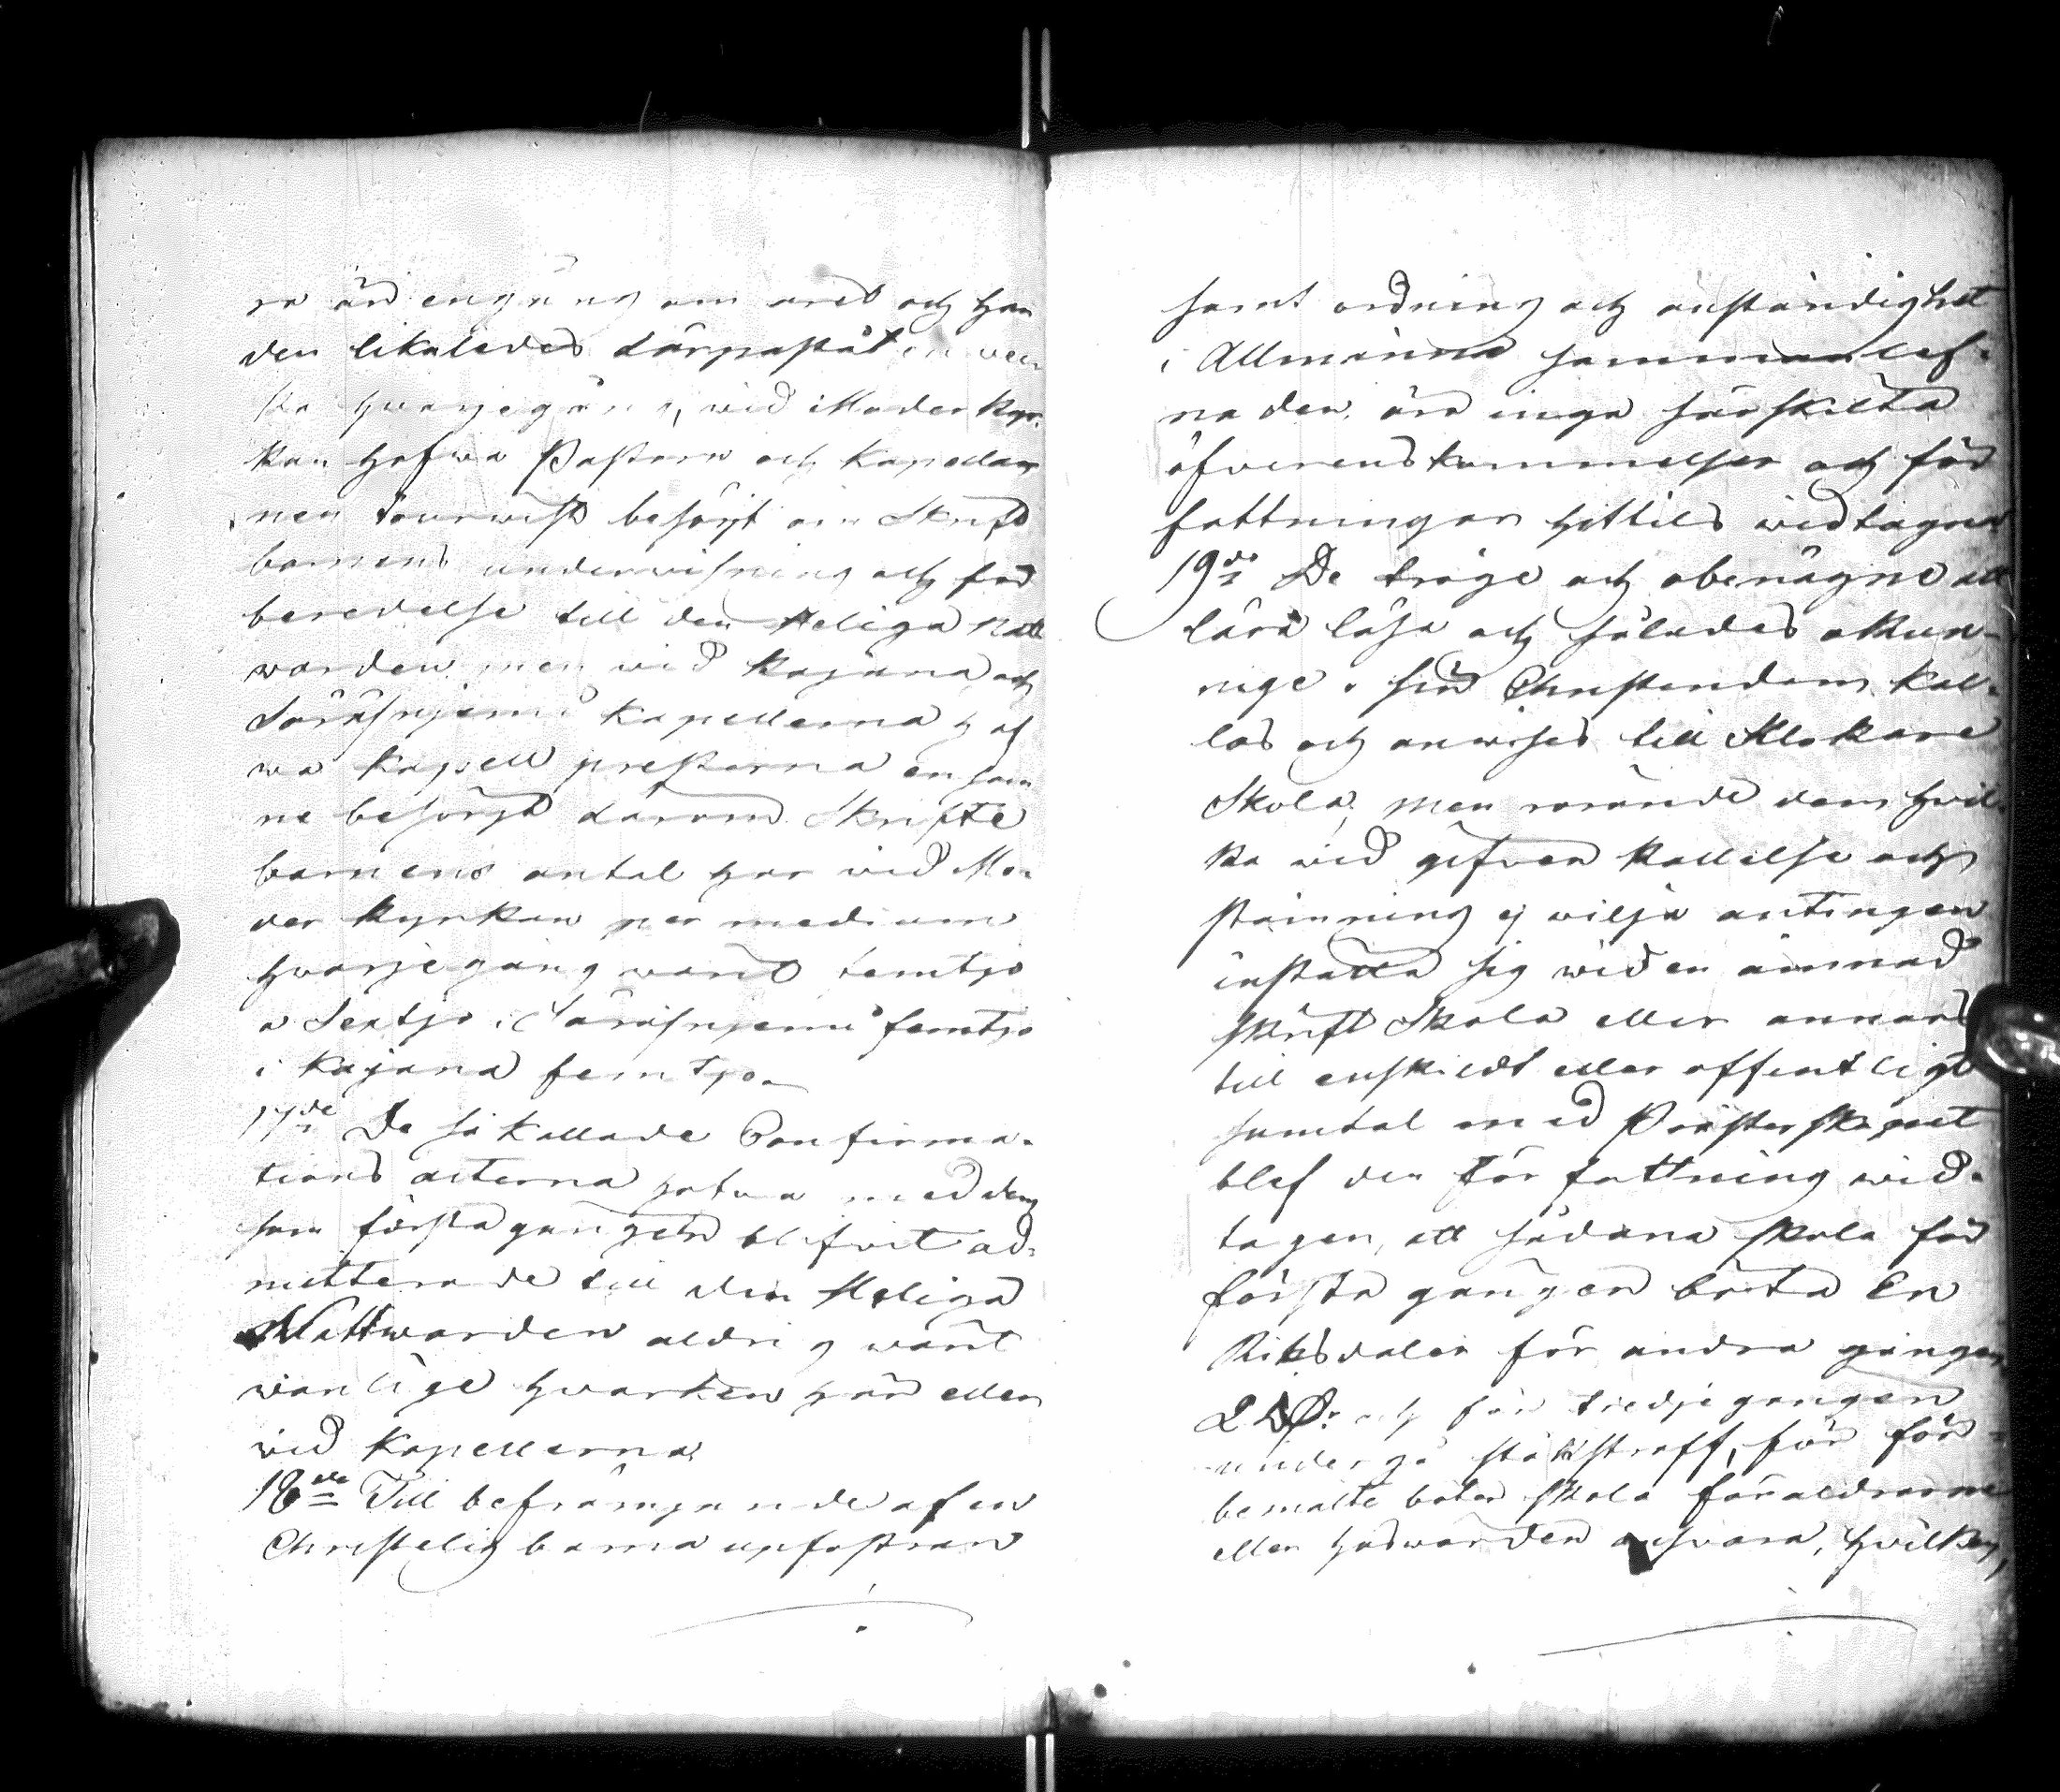 ra är engång om året och han
den likaledes därpåståt en wec-
ka hwarjegång, wid Moderkyr-
kan hafwa Pastorn och Kapellan
nen tourwist besörjt om Skrift
barnens underwisning och för
beredelse till den Heliga Natt
warden men wid Kajana och
Säräisnjemi Kapellerna haf
wa Kapell presterna ensam
ne besörgt därom. Skrifte
barnens antal har wid Mo-
der Kyrkan per medium
hwarjegång warit femtjo
a Sextjo i Säräisnjemi femtjo
i Kajana femtjo
17de De så kallade Confirma-
tions acterna hafwa med dem
som första gången blifwit ad-
mitterade till den Heliga
Nattwarden aldrig warit
wanlige hwarken här eller
wid Kapellerna
18de Till befrämjande af en
Christelig barna upfostran
samt ordning och anständighet
i Allmänna sammanlef-
naden, äro inga särskilta
öfverenskommelser och för
fattningar hittils widtagna
19de De tröge och obenägne att
lära läsa och således okun-
nige i sin Christendom kal-
las och anwises till Klokare
Skola, men rörande dem hwil-
ka wid gifven kallelse och
stämning ej wilja antingen
inställa sig wid en ämnad
skrift Skola eller annars
till enskildt eller offentligt
samtal med Prästerskapet
blef den författning wid-
tagen, att sådana skola för
första gången böta En
Riksdaler för andra gången
2 och för tredje gången
undergå ståkstraff, för för-
bemälte böter skola föräldrarne
eller husbonden answara, hwilken,